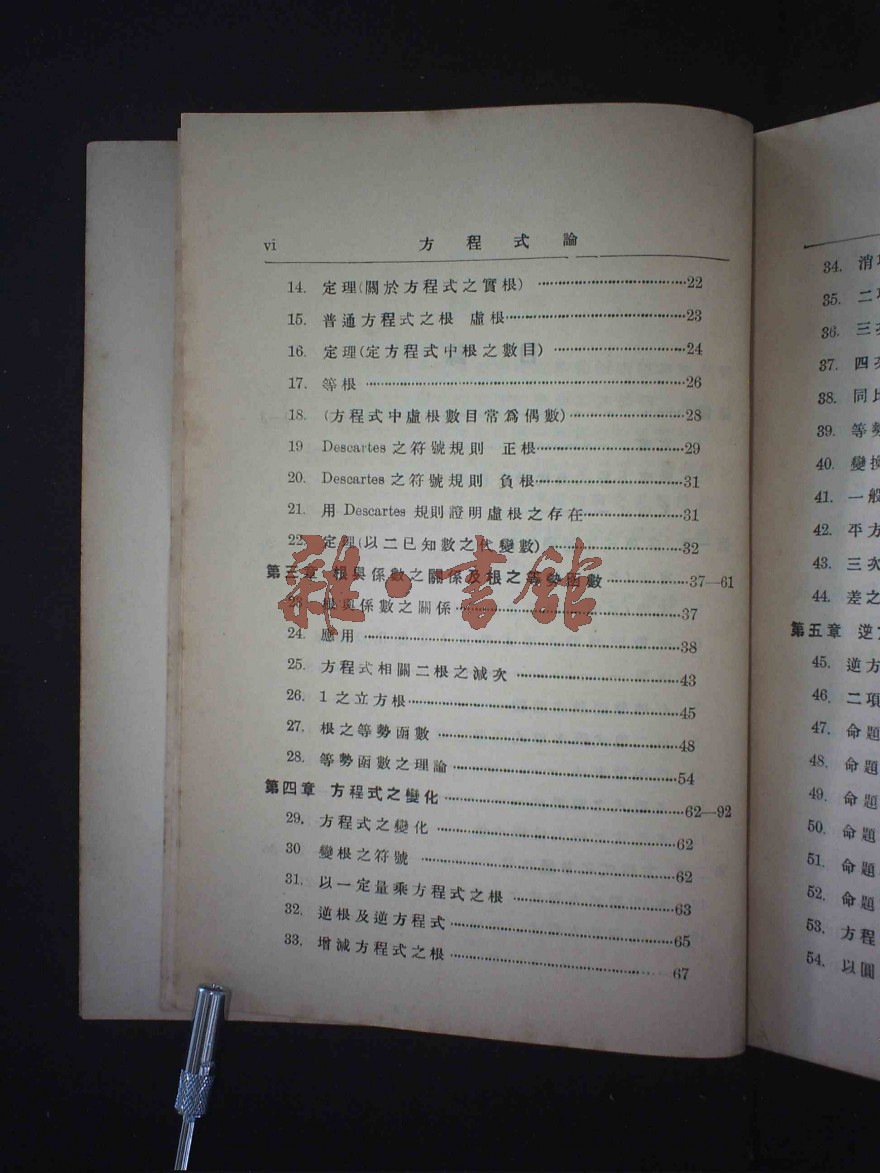 vi 方程式論
14. 定理(關於方程式之實根) ……22
15. 普通方程式之根 虛根……23
16. 定理(定方程式中根之數目)……24
17. 等根……26
18. (方程式中虛根數目常爲偶數)……28
19 Descartes 之符號規則 正根……29
20. Descartes 之符號規則 負根……31
21. 用 Descartes 規則證明虛根之存在……31
22. 定理(以二已知數之代變數)……32
第三章 根與係數之關係及根之等勢函數……37—61
23. 根與係數之關係……37
24. 應用……38
25. 方程式相關二根之減次……43
26. 1 之立方根……45
27. 根之等勢函數……48
28. 等勢函數之理論……54
第四章 方程式之變化……62—92
29. 方程式之變化……62
30 變根之符號……62
31. 以一定量乘方程式之根……63
32. 逆根及逆方程式……65
33. 增減方程式之根……67
雜·書館
34. 消
35. 二項
36. 三次
37. 四次
38. 同比
39. 等勢
40. 變換
41. 一般
42. 平方
43. 三次
44. 差之
第五章 逆
45. 逆方
46. 二項
47. 命題
48. 命題
49. 命題
50. 命題
51. 命題
52. 命題
53. 方程
54. 以圓